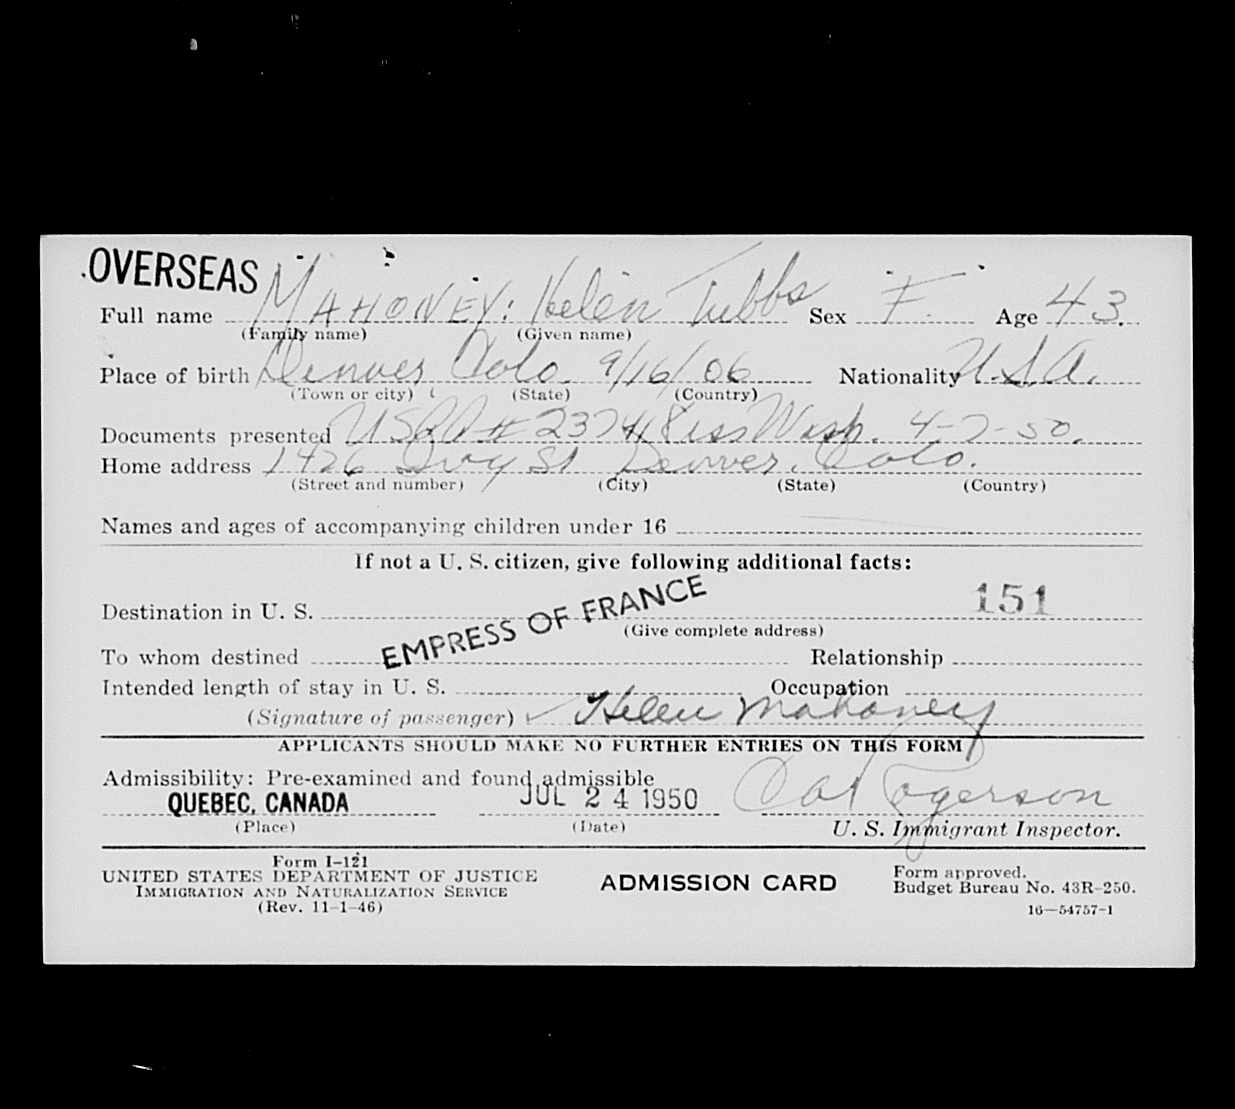 OVERSEAS
Full name MAHONEY: Helen Tubbs Sex F. Age 43.
(Family name) (Given name)
Place of birth Denver Colo. 9/16/06 Nationality U.S.A.
(Town or city) (State) (Country)
Documents presented Wash. 4-7-50.
Home address 1426 Ivy St Denver, Colo.
(Street and number) (City) (State) (Country)
Names and ages of accompanying children under 16
If not a U. S. citizen, give following additional facts:
Destination in U. S. 151
(Give complete address)
EMPRESS OF FRANCE
To whom destined Relationship
Intended length of stay in U. S. Occupation
(Signature of passenger) Helen Mahoney
APPLICANTS SHOULD MAKE NO FURTHER ENTRIES ON THIS FORM
Admissibility: Pre-examined and found admissible
QUEBEC, CANADA JUL 24 1950
(Place) (Date) U. S. Immigrant Inspector.
Form I-121
UNITED STATES DEPARTMENT OF JUSTICE
IMMIGRATION AND NATURALIZATION SERVICE
(Rev. 11-1-46)
ADMISSION CARD
Form approved.
Budget Bureau No. 43R-250.
16—54757-1